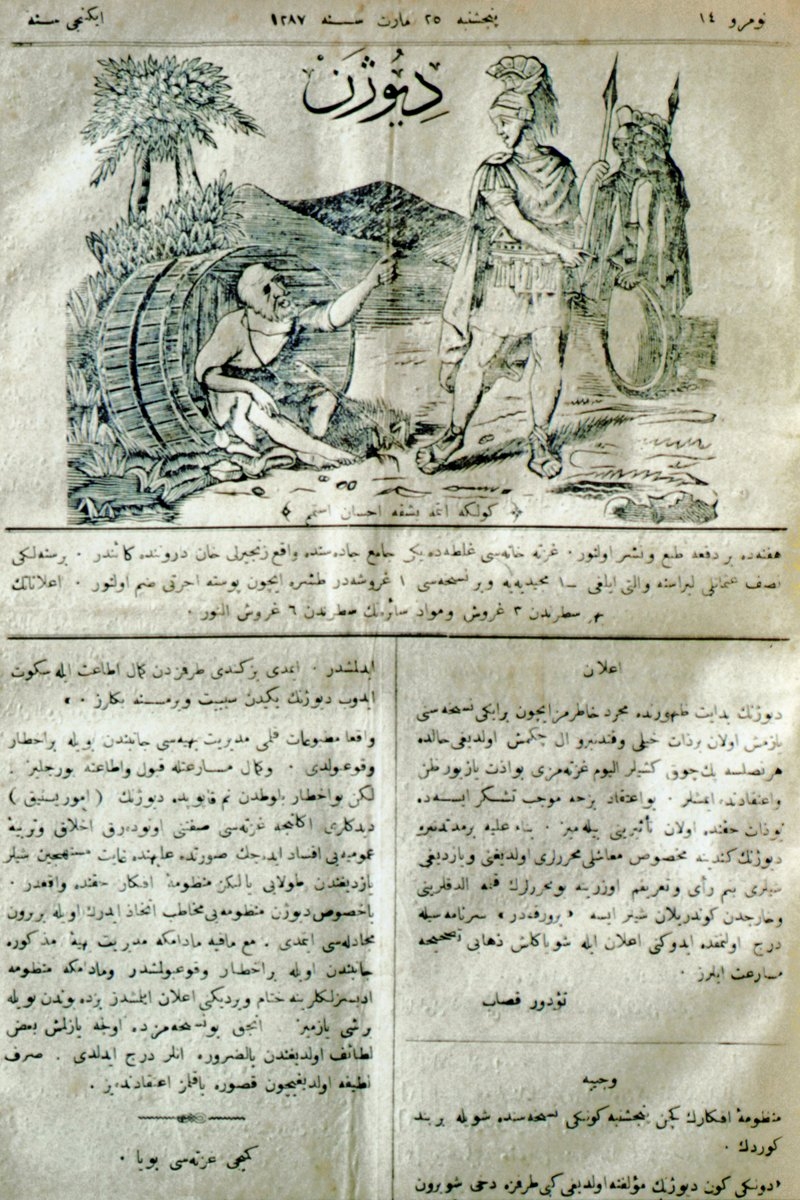 نومرو ١٤
پنجشنبه ٢٥ مارت سنه ١٢٨٧
ایکنجی سنه
دیوژن
﴿ کولکه ایمه بشقه احسان استم ﴾
هفته‌ده بر دفعه طبع و نشر اولنور · غزته خانه‌سی غلطه‌ده یکی جامع جاده‌سنده واقع زنجیرلی خان دروننده کائندر · برسنه‌لکی
نصف عثمانلی لیراسنه والتی ایلغی ١٠ مجیدیه‌یه و بر نسخه‌سی ١ غروشه‌در طشره ایچون پوسته اجرتی ضم اولنور · اعلاناتك
سطرندن ٣ غروش ومواد سائره‌نك سطرندن ٦ غروش النور ·
اعلان
دیوژنك بدایت ظهورنده مجرد خاطرمز ایچون برایکی نسخه‌سنی
یازمش اولان برذات خیلی وقتدنبرو ال چکمش اولدیغی حالده
هر نصلسه پك‌چوق کشیلر الیوم غزته‌مزی بوذات یازیور ظن
واعتقادنده ایمشلر · بواعتقاد بزجه موجب تشکر ایسه‌ده
بوذات حقنده اولان تأثیرینی بیله‌میز · بناءً علیه برمدتدنبرو
دیوژنك کندینه مخصوص معاشلی محررلری اولدیغنی ویازدیغی
شیلری بنم رأی وتعریفم اوزرینه بومحررلرك قلمه الدقلرینی
وخارجدن کوندریلان شیلر ایسه «برورقه‌در» سرنامه‌سیله
درج اولنمقده ایدوکنی اعلان ایله شو یاکلش ذهابی تصحیحه
مسارعت ایلرز ·
تئودور قصاب
وجیه
منظومهٔ افکارك کچن پنجشنبه کونکی نسخه‌سنده شویله بر بند
کوردك ·
«دونکی کون دیوژنك مؤلفنه اولدیغی کبی طرفزه دخی شوبرون
ایدلشدر · ایمدی بز کندی طرفزدن کمال اطاعت ایله سکوت
ایدوب دیوژنك یکیدن سببیت ویرمسنه بکلرز · »
واقعا مطبوعات قلمی مدیریت بهیه‌سی جانبندن بویله براخطار
وقوعبولدی · وکمال مسارعتله قبول واطاعته بورجلیز ·
لکن بواخطار بلوطدن نم قاپوب‌ده دیوژنك (امور بینیق)
دیدکاری اکلنجه غزته‌سی صفتنی اونوده‌رق اخلاق وتربیهٔ
عمومیه‌یی افساد ایده‌جك صورتده علیهنده غایت مستهجن شیلر
یازدیغندن طولایی بالکز منظومهٔ افکار حقنده واقعدر ·
باخصوص دیوژن منظومه‌یی مخاطب اتخاذ ایدرك اویله بربرون
مجادله‌سی ایمدی · مع مافیه مادامکه مدیریت بهیهٔ مذکوره
جانبندن اویله براخطار وقوعبولشدر ومادامکه منظومه
ادبسزلکلرینه ختام ویردیکنی اعلان ایلمشدر بزده بوندن بویله
برشی یازمیز · انجق بونسخه‌مزده اولجه یازلمش بعض
لطائف اولدیغندن بالضروره انلر درج ایدلدی · صرف
لطیفه اولدیغیچون قصوره باقلمز اعتقادنده‌یز ·
کیجی غزته‌سی بویا ·